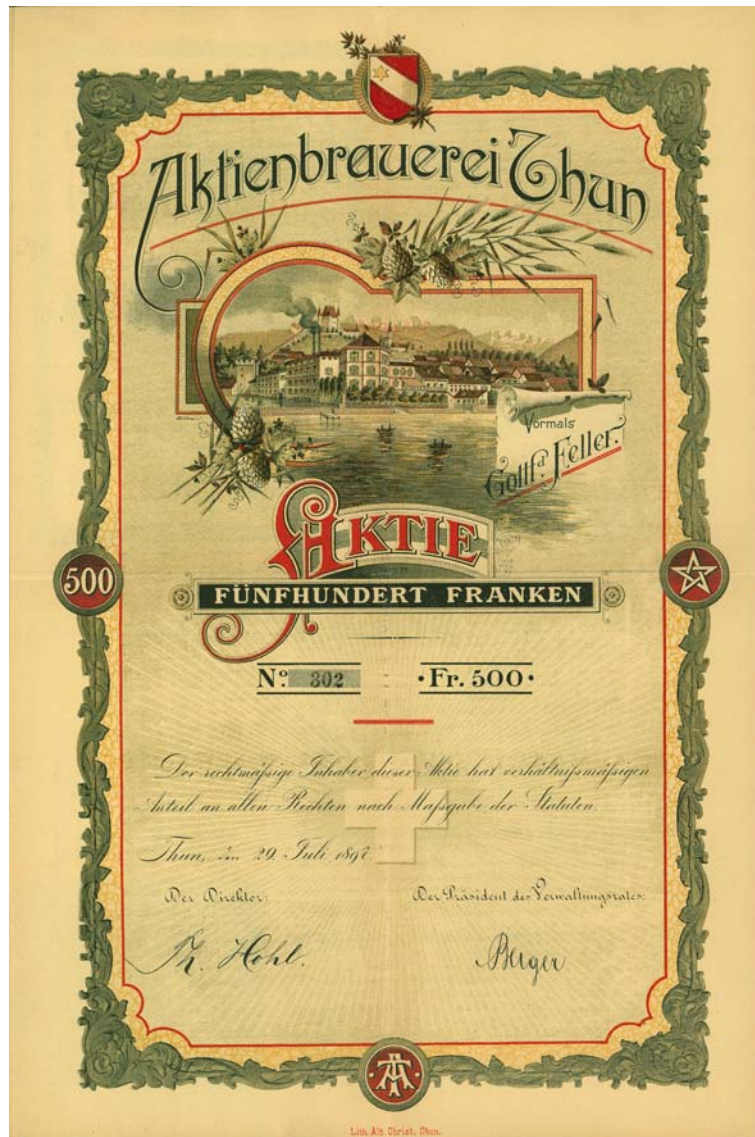 Aktienbrauerei Thun
Vormals
Gottf.d Feller.
AKTIE
500
FÜNFHUNDERT FRANKEN
No. 302 · Fr. 500 ·
Der rechtmäßige Inhaber dieser Aktie hat verhältnißmäßigen
Anteil an allen Rechten nach Maßgabe der Statuten.
Thun, den 29. Juli 1897.
Der Direktor: Der Präsident des Verwaltungsrates:
Th. Hohl. Berger
Lith. Alb. Christ, Thun.